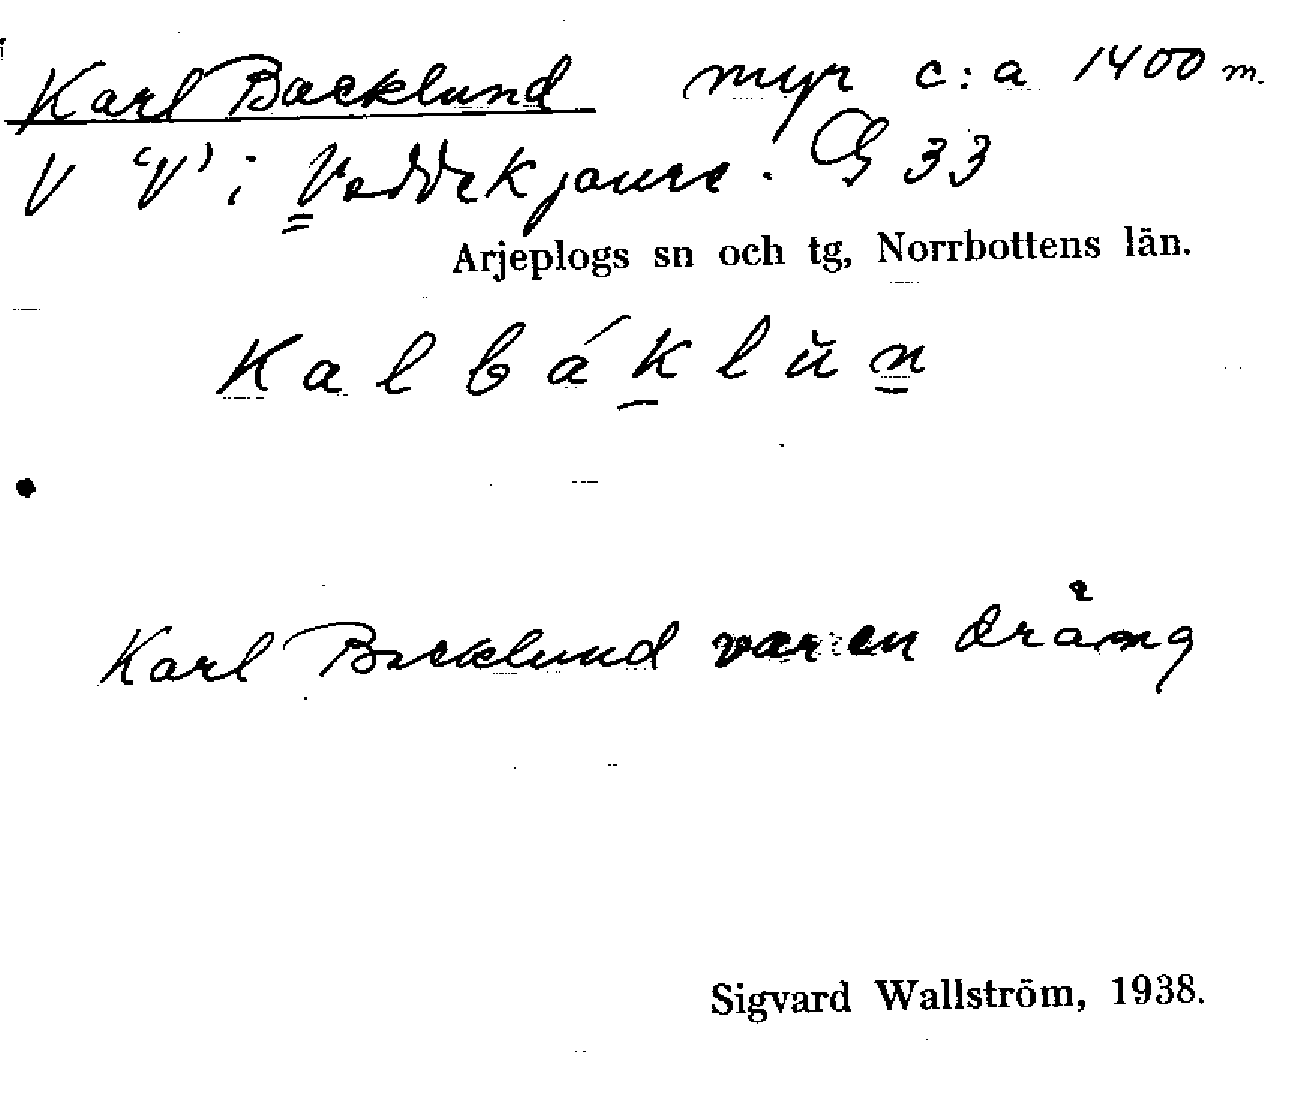 Karl Backlund myr c:a 1400 m.
V 'V' i Vaddekjaure. G 33
Arjeplogs sn och tg, Norrbottens län.
Kalbáklŭn
Karl Backlund var en dräng
Sigvard Wallström, 1938.